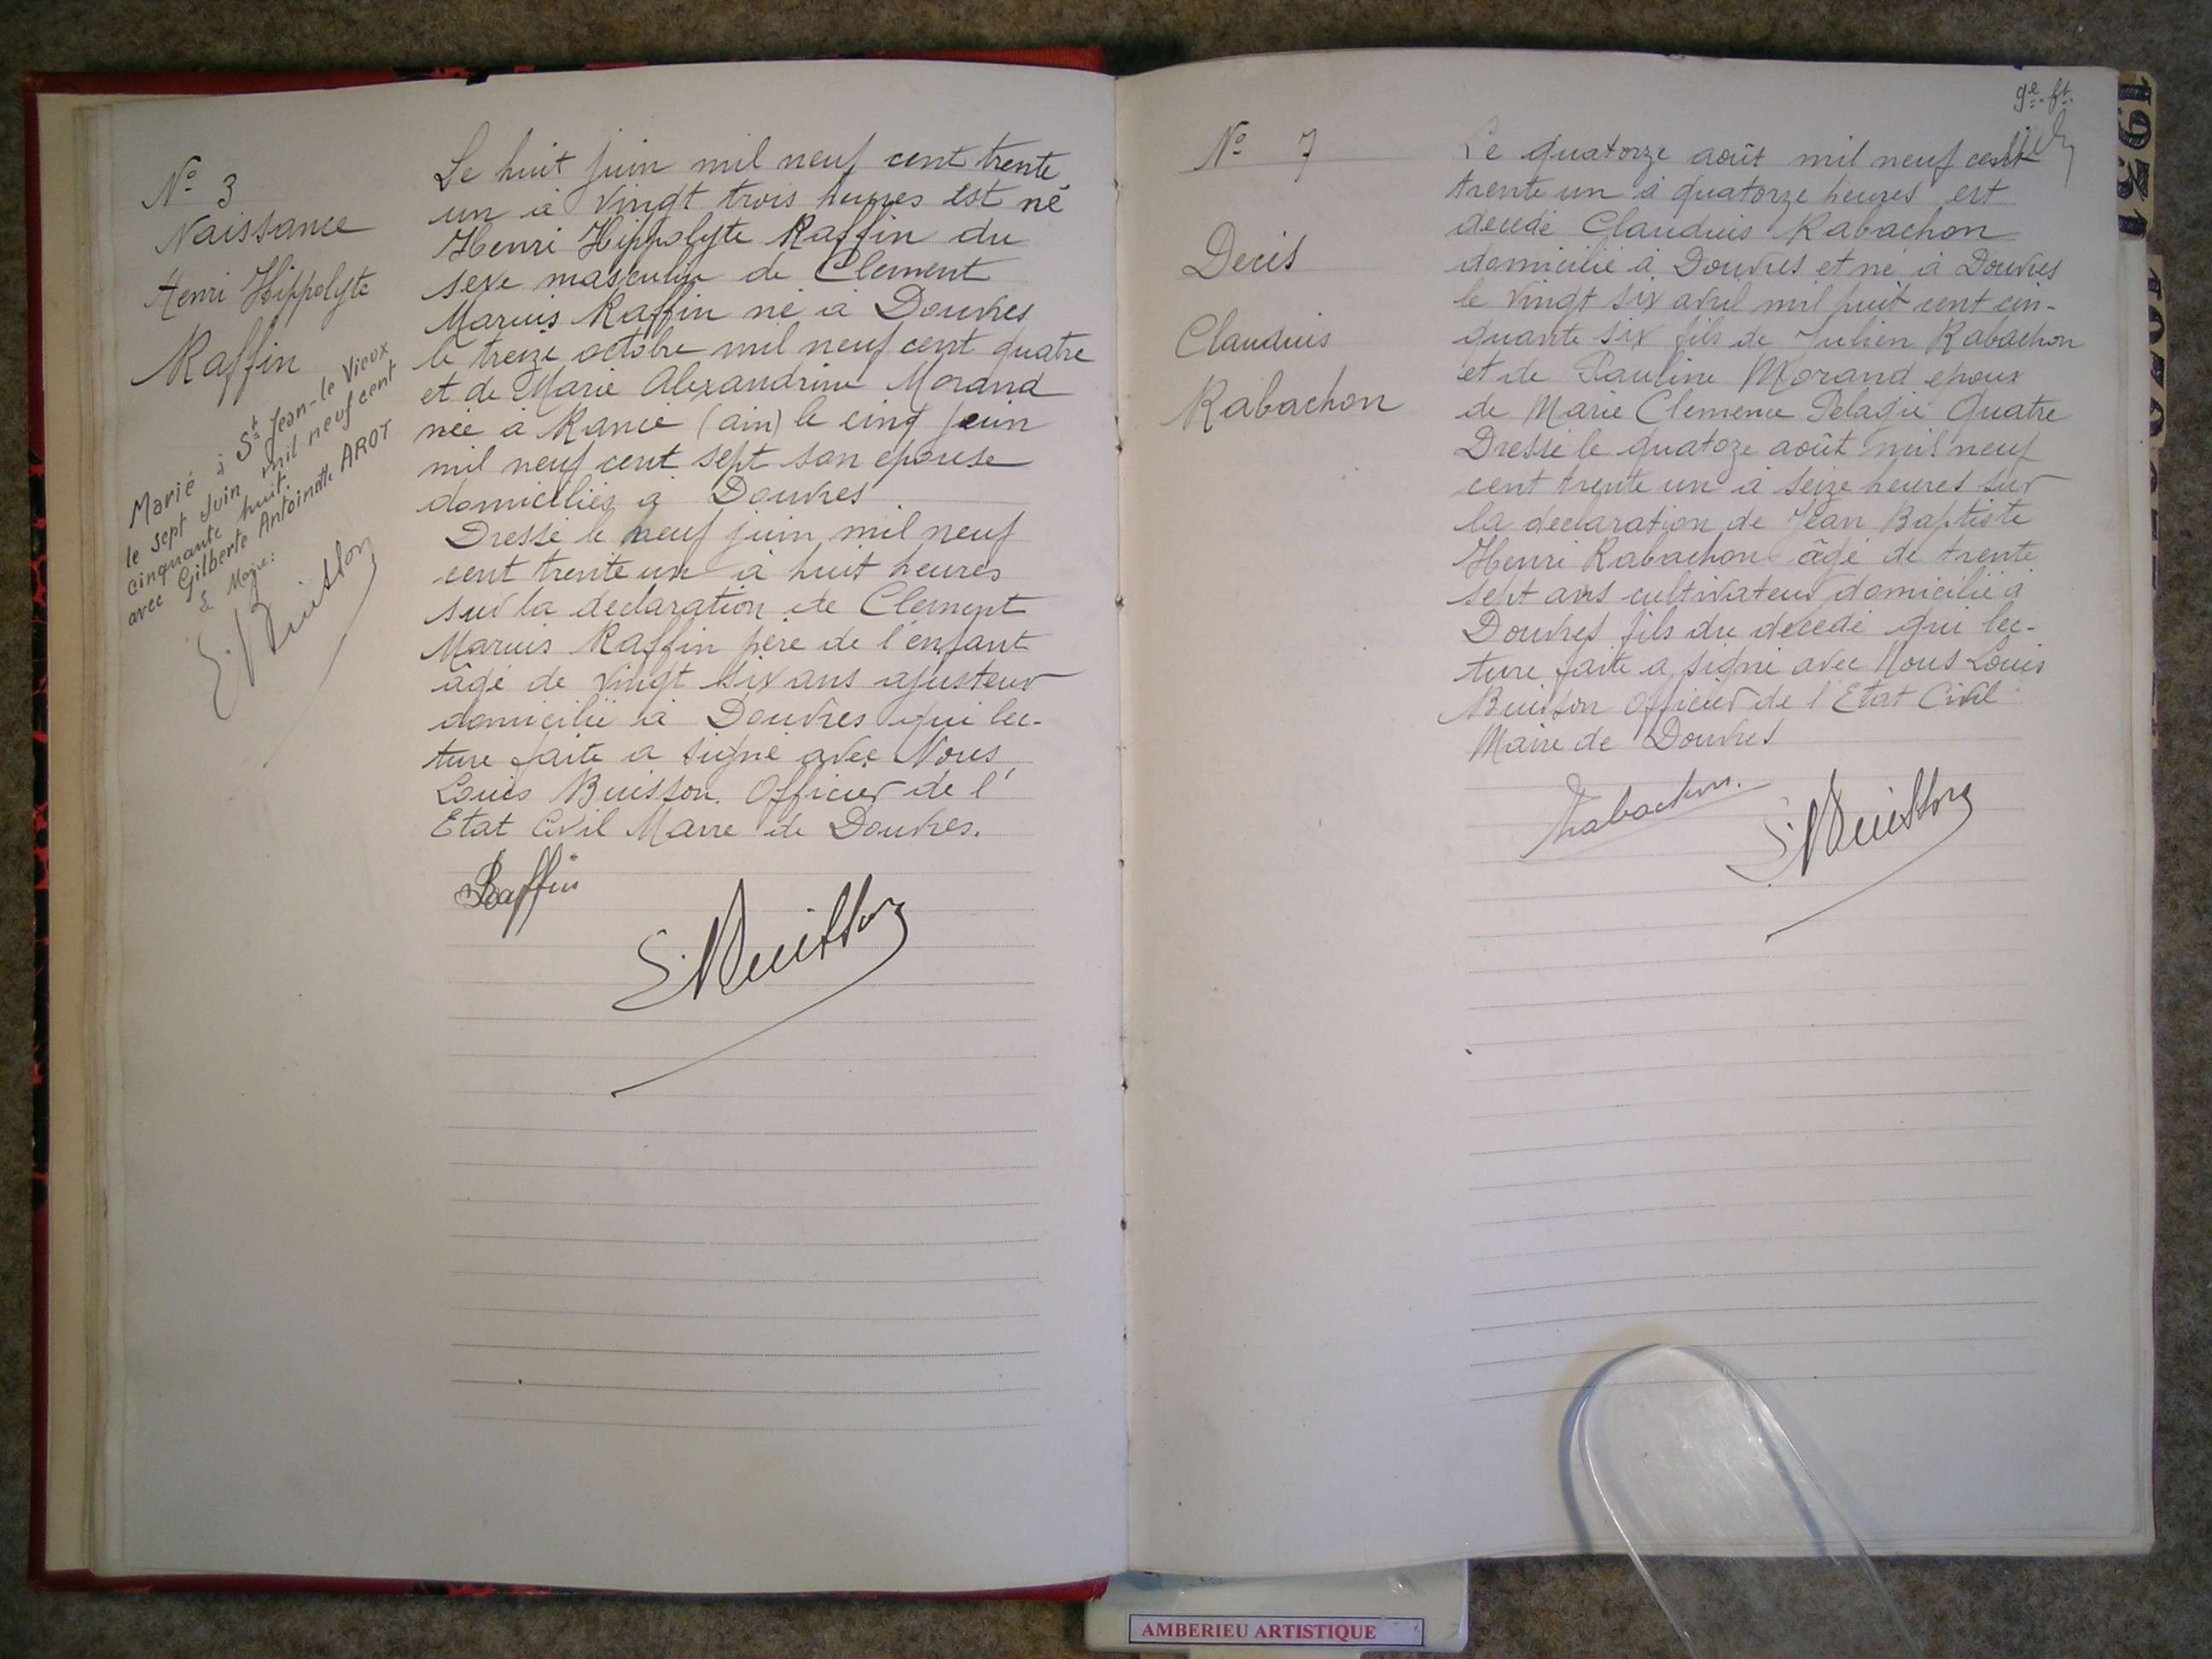 N° 3
Naissance
Henri Hippolyte
Raffin
Marié à St Jean-le Vieux
le sept Juin mil neuf cent
cinquante huit.
avec Gilberte Antoinette AROT
Le Maire:
Le huit juin mil neuf cent trente
un à vingt trois heures est né
Henri Hippolyte Raffin du
sexe masculin de Clement
Marius Raffin né à Douvres
le treize octobre mil neuf cent quatre
et de Marie Alexandrine Morand
née à Rancé (ain) le cinq juin
mil neuf cent sept son epouse
domiciliés à Douvres
Dressé le neuf juin mil neuf
cent trente un à huit heures
sur la declaration de Clement
Marius Raffin père de l'enfant
âgé de vingt six ans ajusteur
domicilié à Douvres qui lec-
ture faite a signé avec Nous,
Louis Buisson. Officier de l'
Etat Civil Maire de Douvres.
Raffin
L. Buisson
9e ft.
N° 7
Décès
Claudius
Rabachon
Le quatorze août mil neuf cent
trente un à quatorze heures est
decedé Claudius Rabachon
domicilié à Douvres et né à Douvres
le vingt six avril mil huit cent cin-
quante six fils de Julien Rabachon
et de Pauline Morand epoux
de Marie Clemence Pelagie Quatre
Dressé le quatoze août mil neuf
cent trente un à seize heures sur
la declaration de Jean Baptiste
Henri Rabachon âgé de trente
sept ans cultivateur domicilié à
Douvres fils du decedé qui lec-
ture faite a signé avec Nous Louis
Buisson Officier de l'Etat Civil
Maire de Douvres
Rabachon.
L. Buisson
1931
AMBERIEU ARTISTIQUE